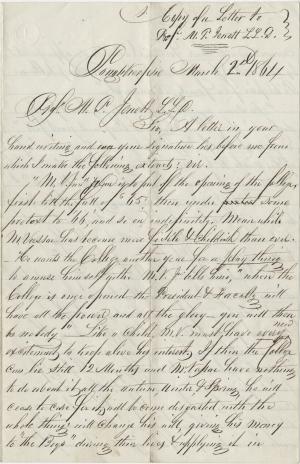 Copy of a Letter to
Prof. M. P. Jewett L.L.D.
Poughkeepsie March 2nd 1864
Prof. M. P. Jewett, L.L.D.
Sir, A letter in your
hand writing and your signature lies before me from
which I make the following extracts: viz.
put off the opening of the College
first till the fall of '65, then under some
pretext to '66, and so on indefinitely. Mean while
M. Vassar has become more fickle & Childish than ever.
He wants the College another year for a play thing
to amuse himself with. "when the
College is once opened the President & Faculty will
have all the power, and all the glory - you will then
be nobody". Like a Child, M.V. must have every
excitement to keep alive his interest. If then the College
can lie still 12 Months and M. Vassar have nothing
to do about it all the Winter & Spring, he will
cease to care for it, will become disgusted with the
whole thing, will change his will, giving his money
to "the Boys" during their lives & applying it in